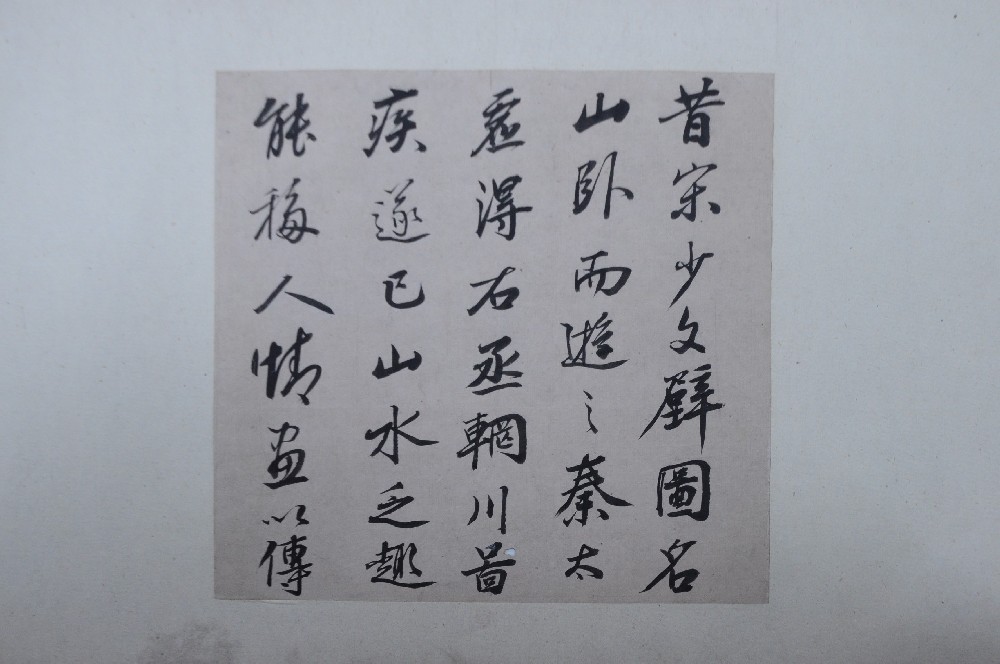 昔宋少文壁圖名
山卧而遊之秦太
虛得右丞輞川啚
疾遂已山水之趣
能移人情畫以傳